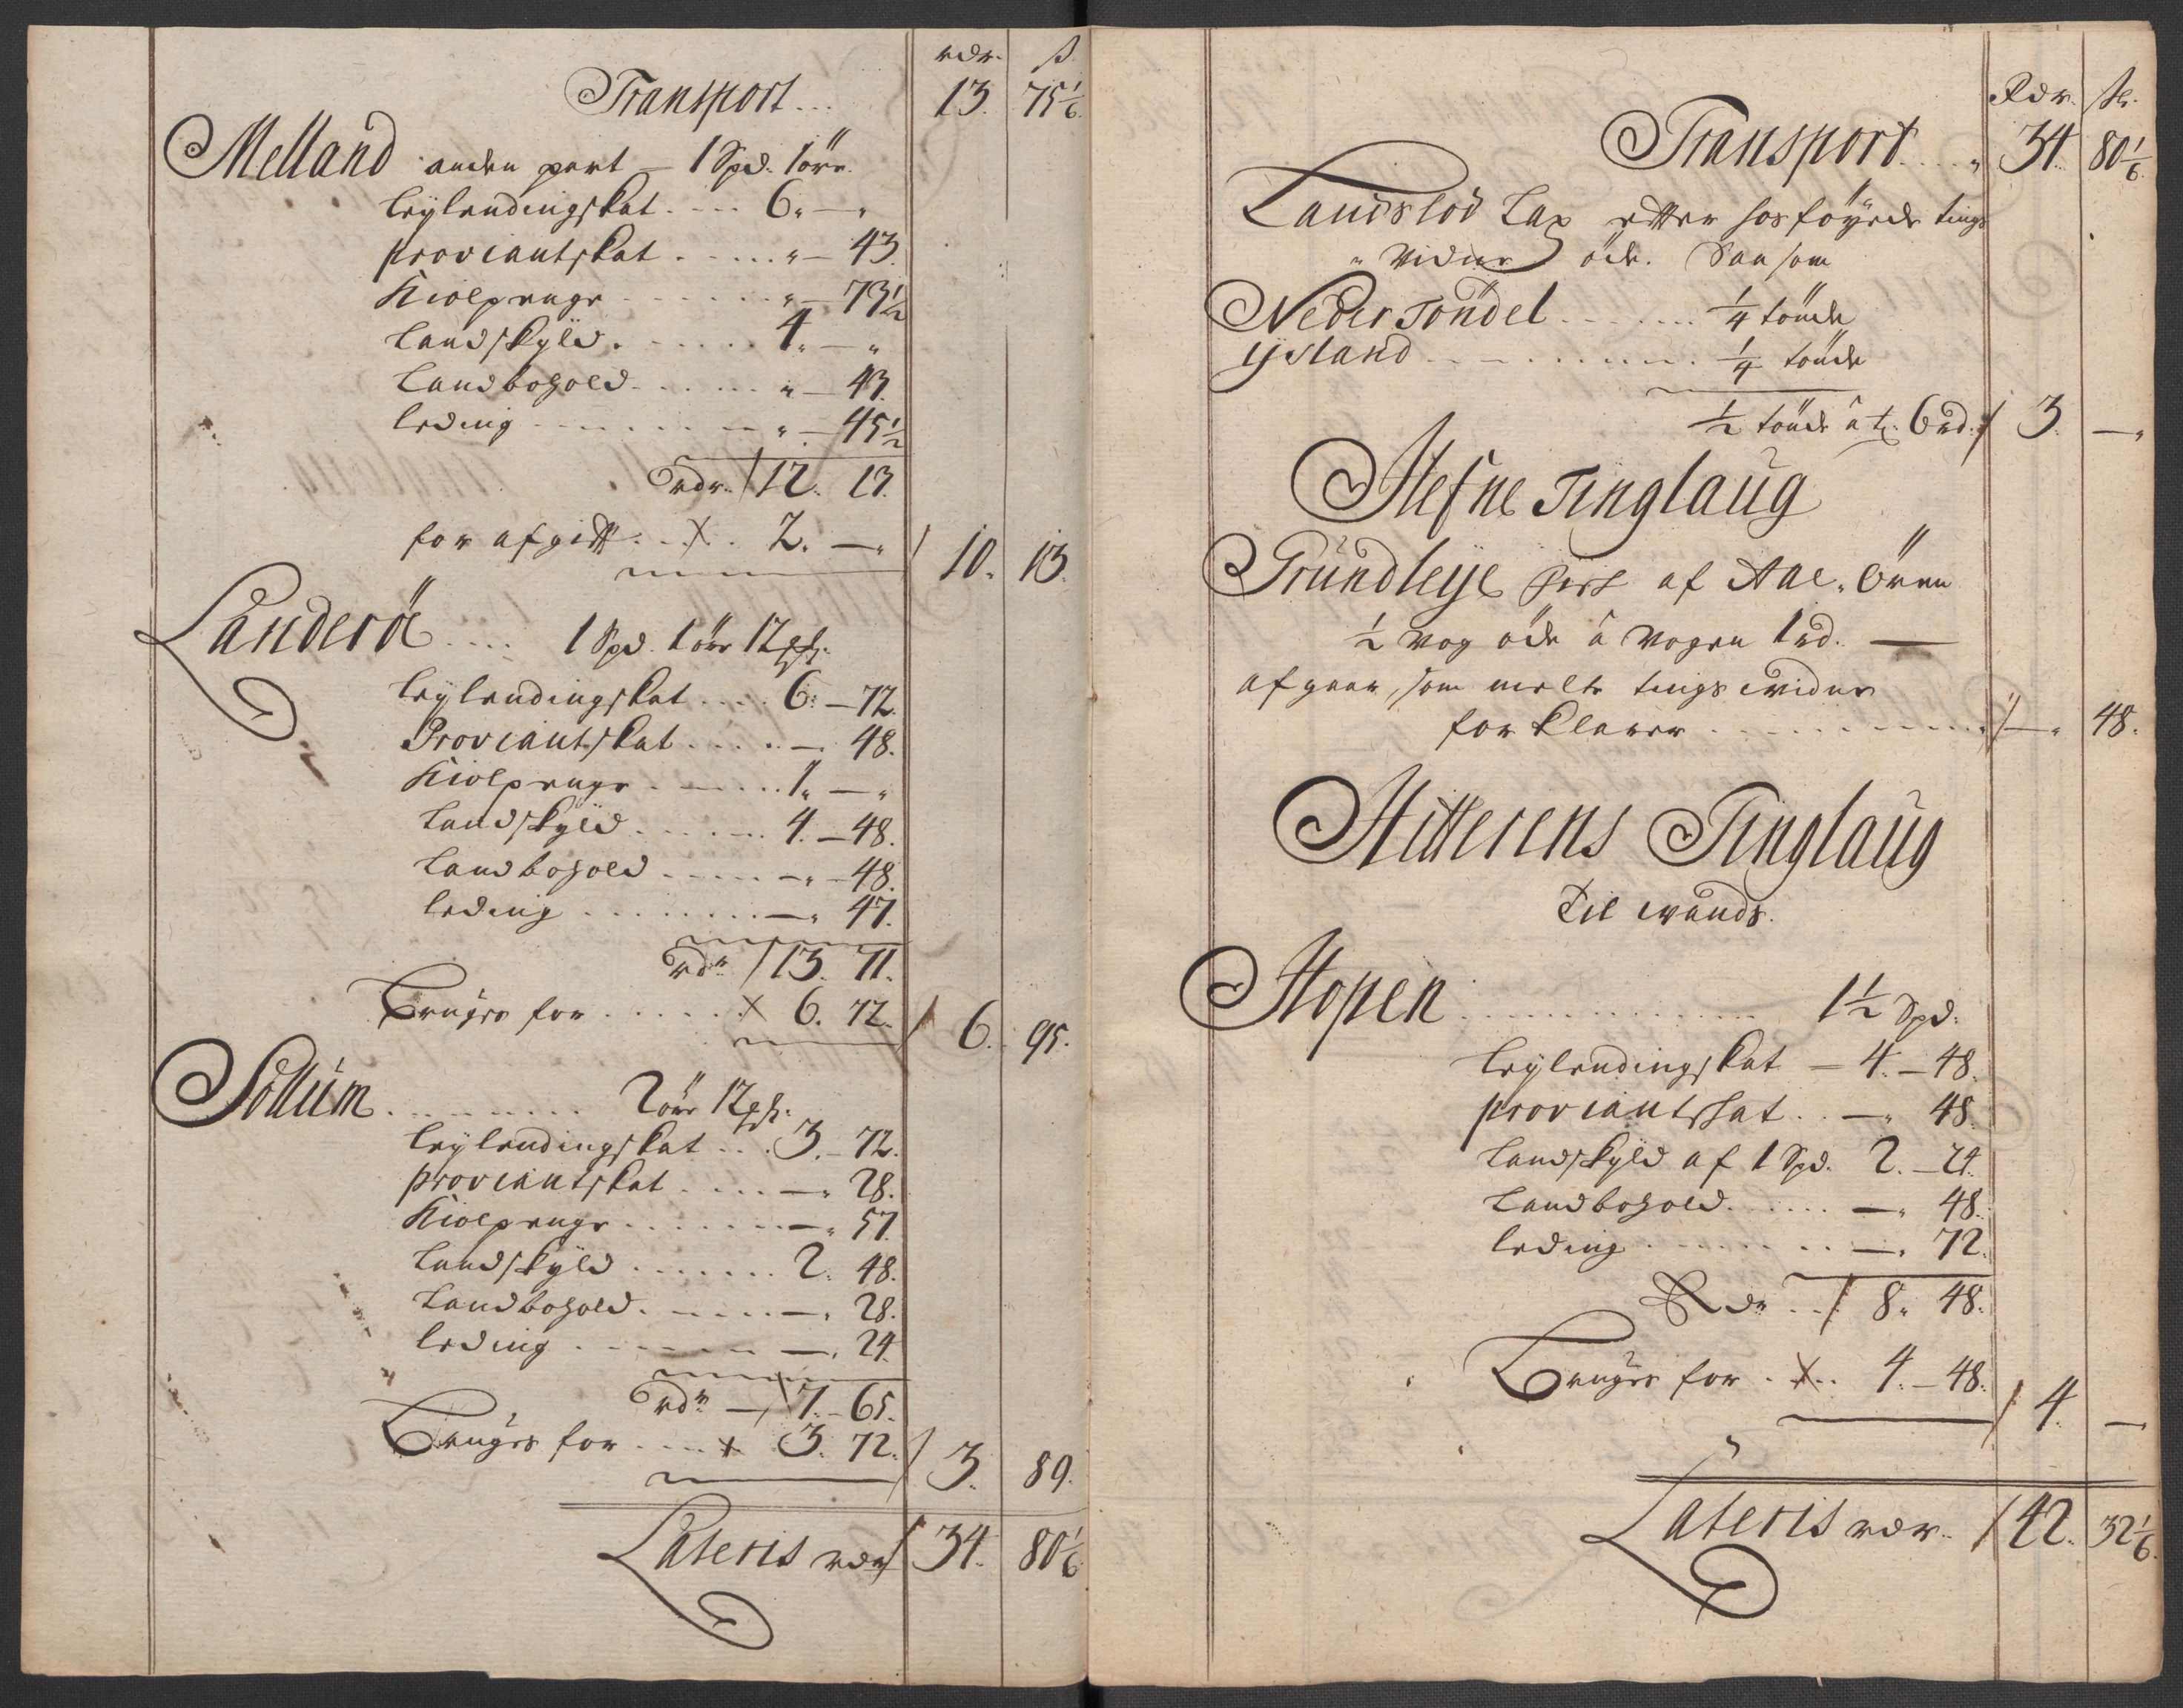 rdr. ß
Transport... 13. 75 1/6
Melland anden part — 1 Spd. 1 ört.
leÿlendingskat.... 6. — "
proviantskat...... " — 43.
Kiolpenge...... " — 73 1/2
Landskÿld...... 4. — "
Landbohold...... " — 43.
leding...... " — 45 1/2
rdr. / 12. 13.
for afgift... X. 2. — " / 10. 13.
Landeröe.... 1 Spd. 1 ört 12
leÿlendingskat.... 6. — 72.
Proviantskat..... — 48.
Kiolpenge...... 1. — "
Landskÿld...... 4. — 48.
Landbohold..... — " — 48.
leding........ — " 47.
rdr / 13. 71.
Bruges for..... X 6. 72. / 6. 95.
Sollúm......... 2 ört 12
leÿlendingskat... 3. — 72.
proviantskat.... — " 28.
Kiolpenge....... — " 57.
Landskÿld....... 2. 48.
Landbohold...... — " 28.
leding...... — " 24.
rdr — / 7. — 65.
Bruges for.... X 3. 72. / 3. 89.
Lateris rdr / 34. 80 1/6
Rdr. ß.
Transport.... " 34. 80 1/6
Landslod Lax efter hosföÿede tings
" vidne öde. Saasom
Neder Töndel....... 1/4 tönde
ÿsland......... 1/4 tönde
1/2 tönde â tr. 6 rd. / 3. — "
Hefne Tinglaug
Grundleÿe fisk af Aae. Ören
1/2 vog öde â vogen 1 rd. —
afgaar, som melte tings widne
forklarer............. / — " 48.
Hitterens Tinglaug
Til wands.
Hopen.............. 1 1/2 Spd.
leÿlendingskat — 4. — 48.
proviantskat.. — " 48.
Landskÿld af 1 Spd. 2. — 24.
Landbohold..... — " 48.
leding....... — . 72.
Rdr... / 8. 48.
Bruges for. X.. 4. — 48. / 4. —
Lateris rdr. / 42. 32 1/6